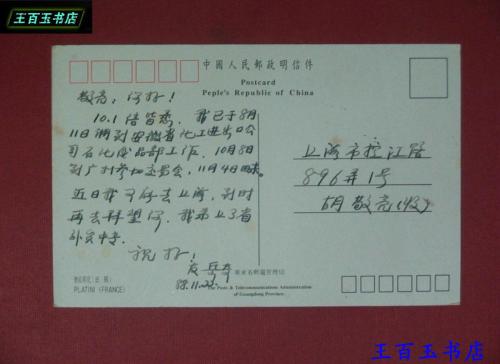 王百玉书店
中國人民郵政明信片
Postcard
Peple's Republic of China
敬亮:你好!
10.1信皆悉,我已于8月
11日调到安徽省化工进出口公司
石化产品部工作,10月8日
到广州参加交易会,11月4日回来。
近日我可能去上海,到时
再去拜望你。我弟上了省
外贸中专。
祝好!
上海市控江路
896弄1号
胡敬亮(收)
PLATINI (FRANCE)
The Posts & Telecommunications Administration
of Guangdong Province
王百玉书店